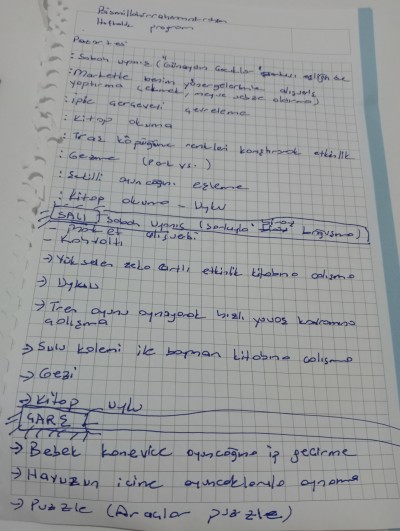 Bismillahirrahmanirrahim
Haftalık program
Pazartesi
: Sabah uyanış (Günaydın şarkısı eşliğinde
: Markette benim yönergelerimle alışveriş
yaptırma (ekmek, meyve sebze aldırma)
: ipli çerçeveyi çevreleme
: Kitap okuma
: Traş köpüğüne renkleri karıştırarak etkinlik
: Gezme (Park vs.)
: Şekilli oyuncağını eşleme
: Kitap okuma - Uyku
SALI Sabah uyanış (
- market alışverişi
- Kahvaltı
→ Yükselen zeka kartlı etkinlik kitabına çalışma
→ Uyku
→ Tren oyunu oynayarak hızlı yavaş kavramına
çalışma
→ Sulu kalemi ile boyman kitabına çalışma
→ Gezi
→ Kitap uyku
ÇARŞ
→ Bebek kanevice oyuncağına ip geçirme
→ Havuzun içine oyuncaklarıyla oynama
→ Puzzle (Araçlar puzzle)